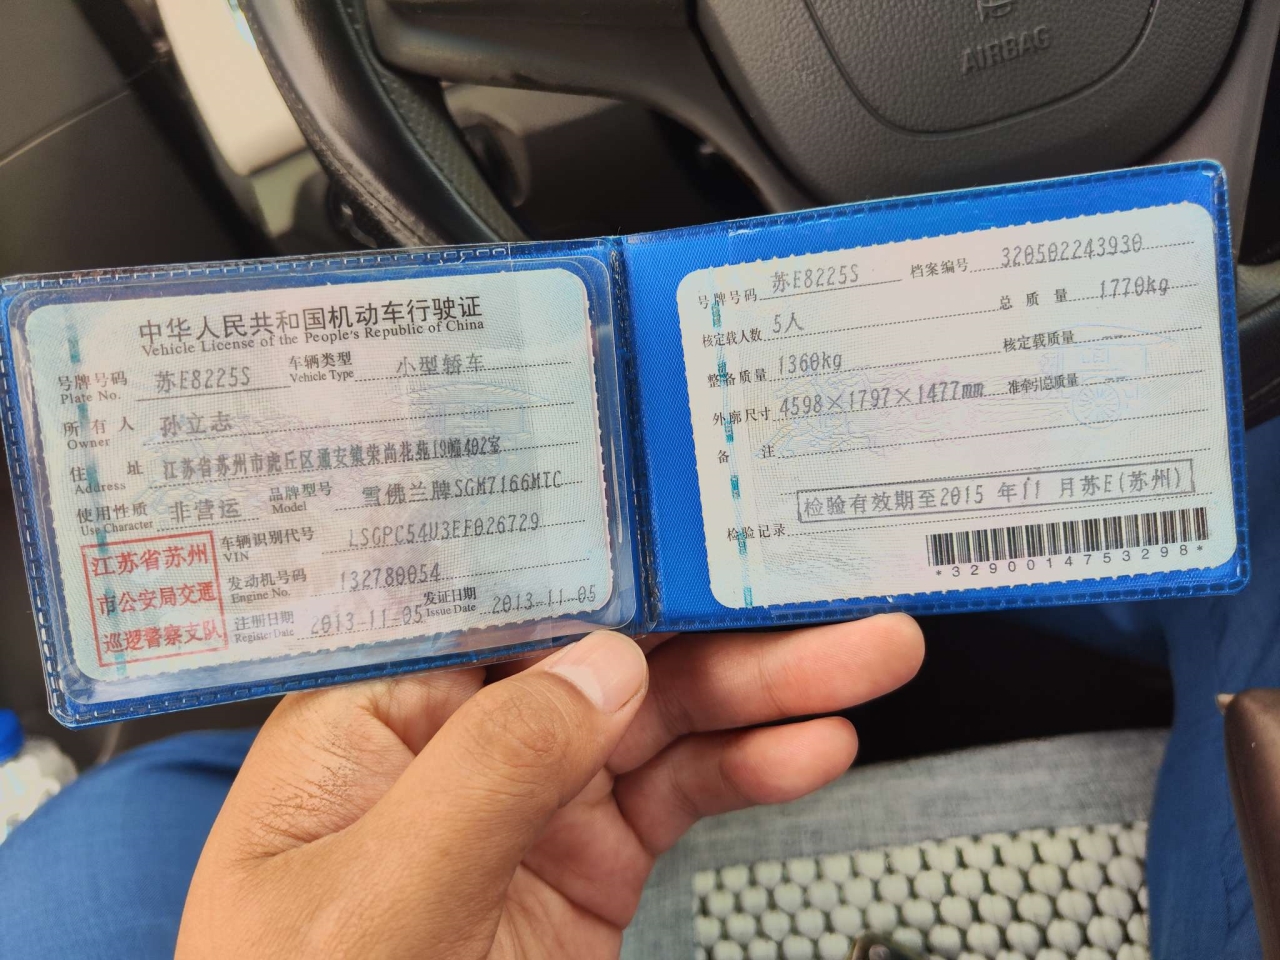 AIRBAG
中华人民共和国机动车行驶证
Vehicle License of the People's Republic of China
号牌号码 苏E8225S 车辆类型 小型轿车
Plate No. Vehicle Type
所有人 孙立志
Owner
住址 江苏省苏州市虎丘区通安镇荣尚花苑19幢402室
Address
使用性质 非营运 品牌型号 雪佛兰牌SGM7166MTC
Use Character Model
江苏省苏州
市公安局交通
巡逻警察支队
车辆识别代号 LSGPC54U3EF026729
VIN
发动机号码 132780054
Engine No.
注册日期 2013-11-05 发证日期 2013-11-05
Register Date Issue Date
号牌号码 苏E8225S 档案编号 320502243930
核定载人数 5人 总质量 1770kg
整备质量 1360kg 核定载质量
外廓尺寸 4598×1797×1477mm 准牵引总质量
备注
检验有效期至2015 年11 月苏E(苏州)
检验记录
*3290014753298*